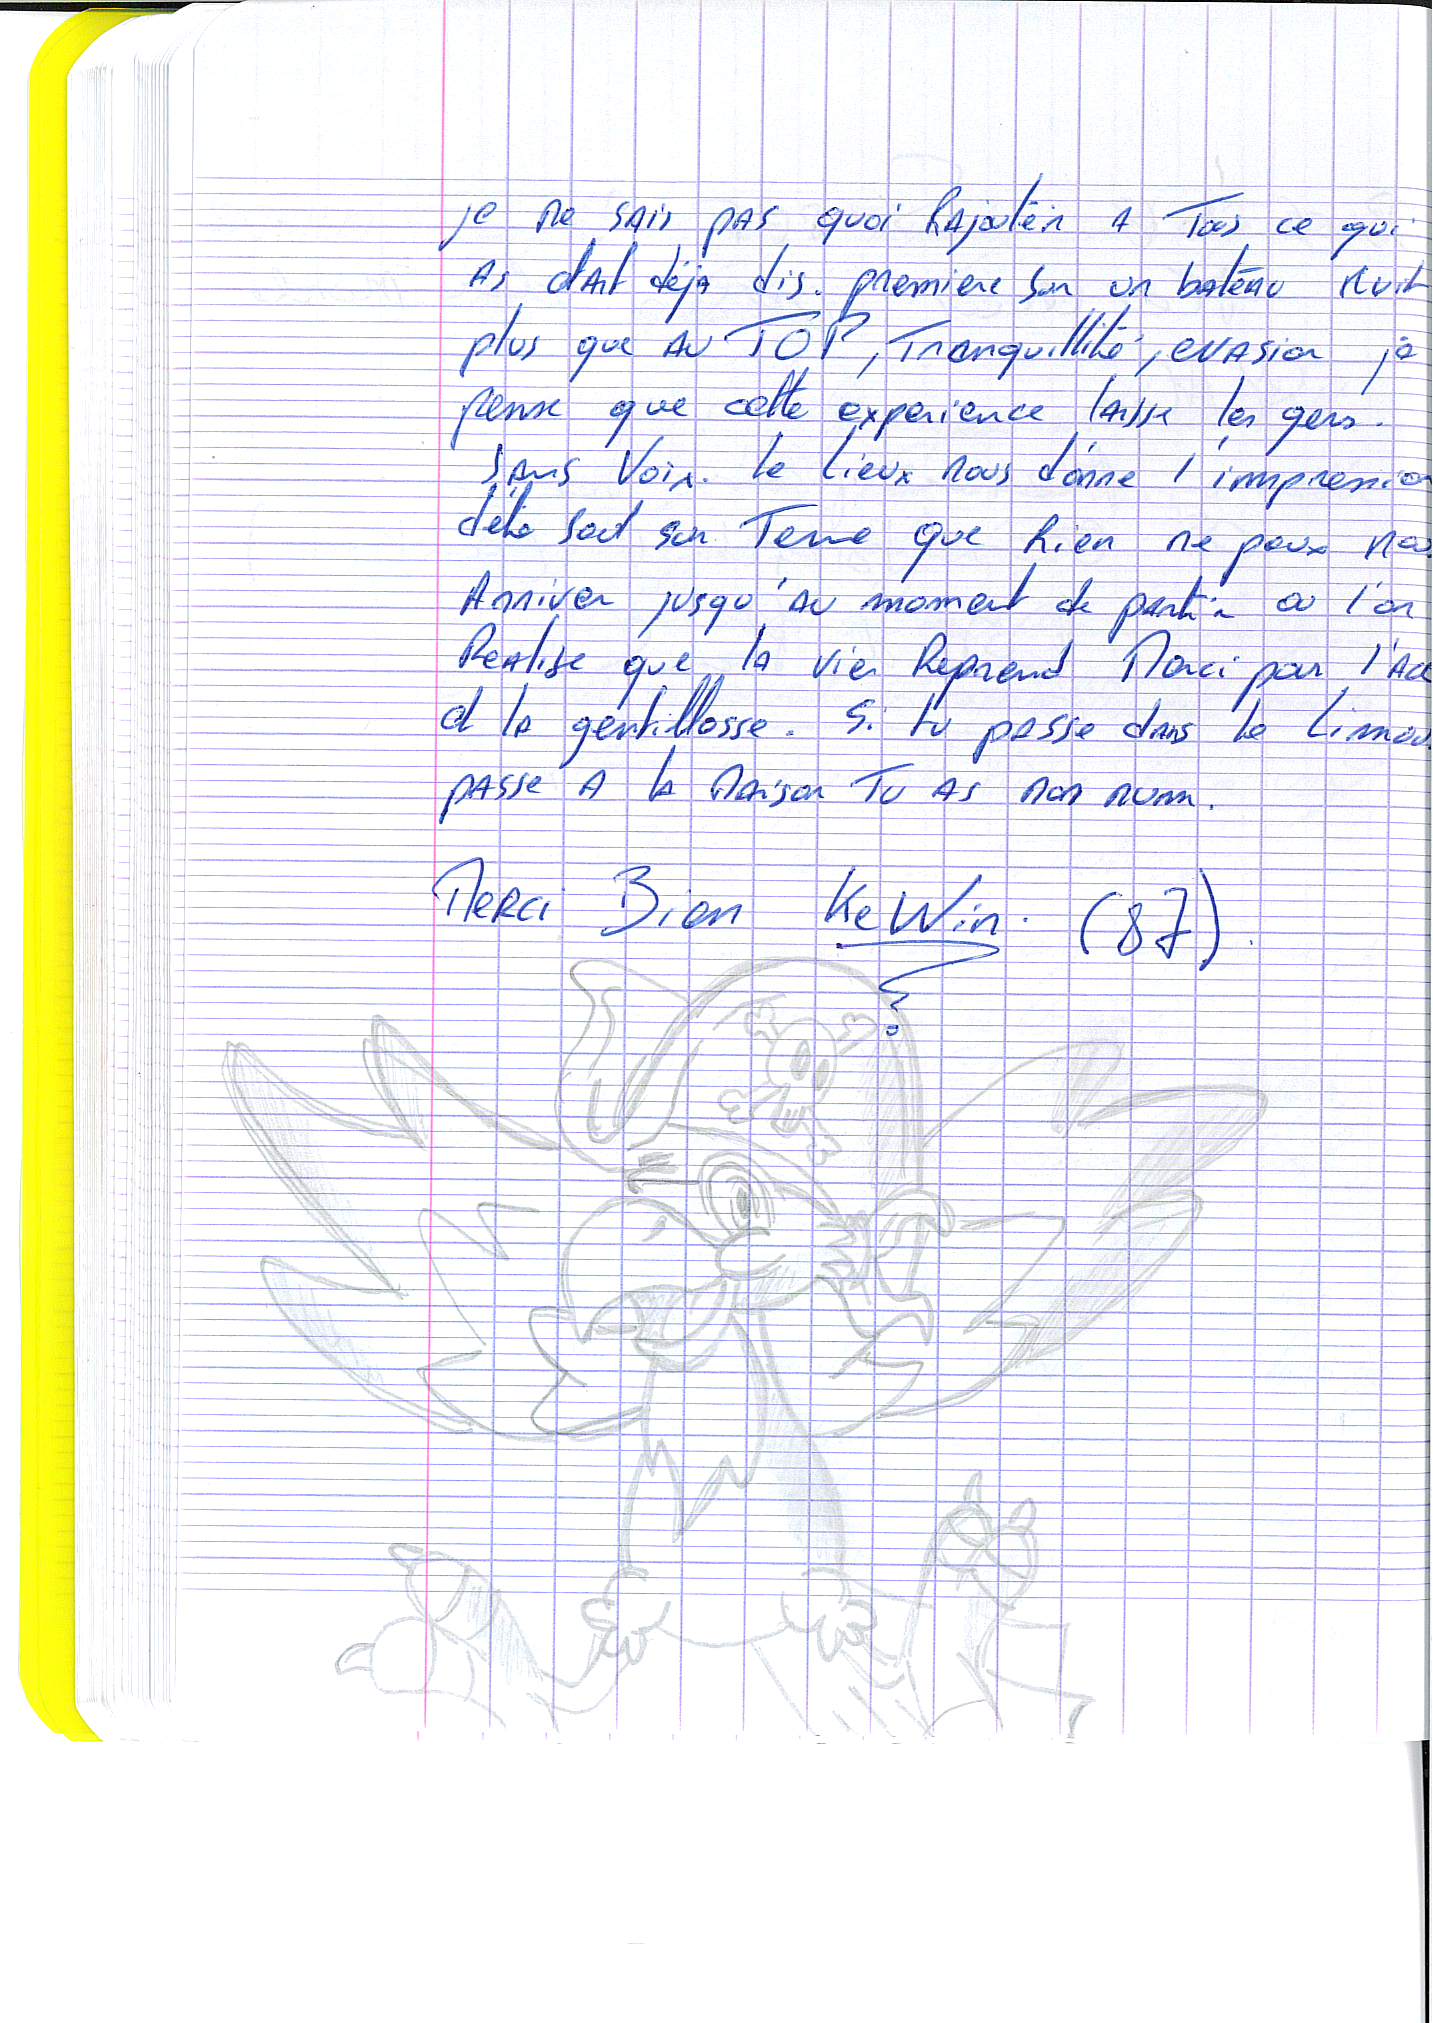 je ne sais pas quoi Rajouter A Tous ce qui
As était déjà dis. premiere sur un bateau Nuit
plus que AU TOP, Tranquillité, evasion je
pense que cette experience laisse les gens.
sans Voix. le lieux nous donne l'impression
d'être seul sur Terre que Rien ne peux
Arriver jusqu'au moment de partir ou l'on
Realise que la vien Reprend Merci pour
et la gentillesse. Si tu passe dans le
passe A la Maison Tu AS mon num.
MERCI Bien KeWin. (87).